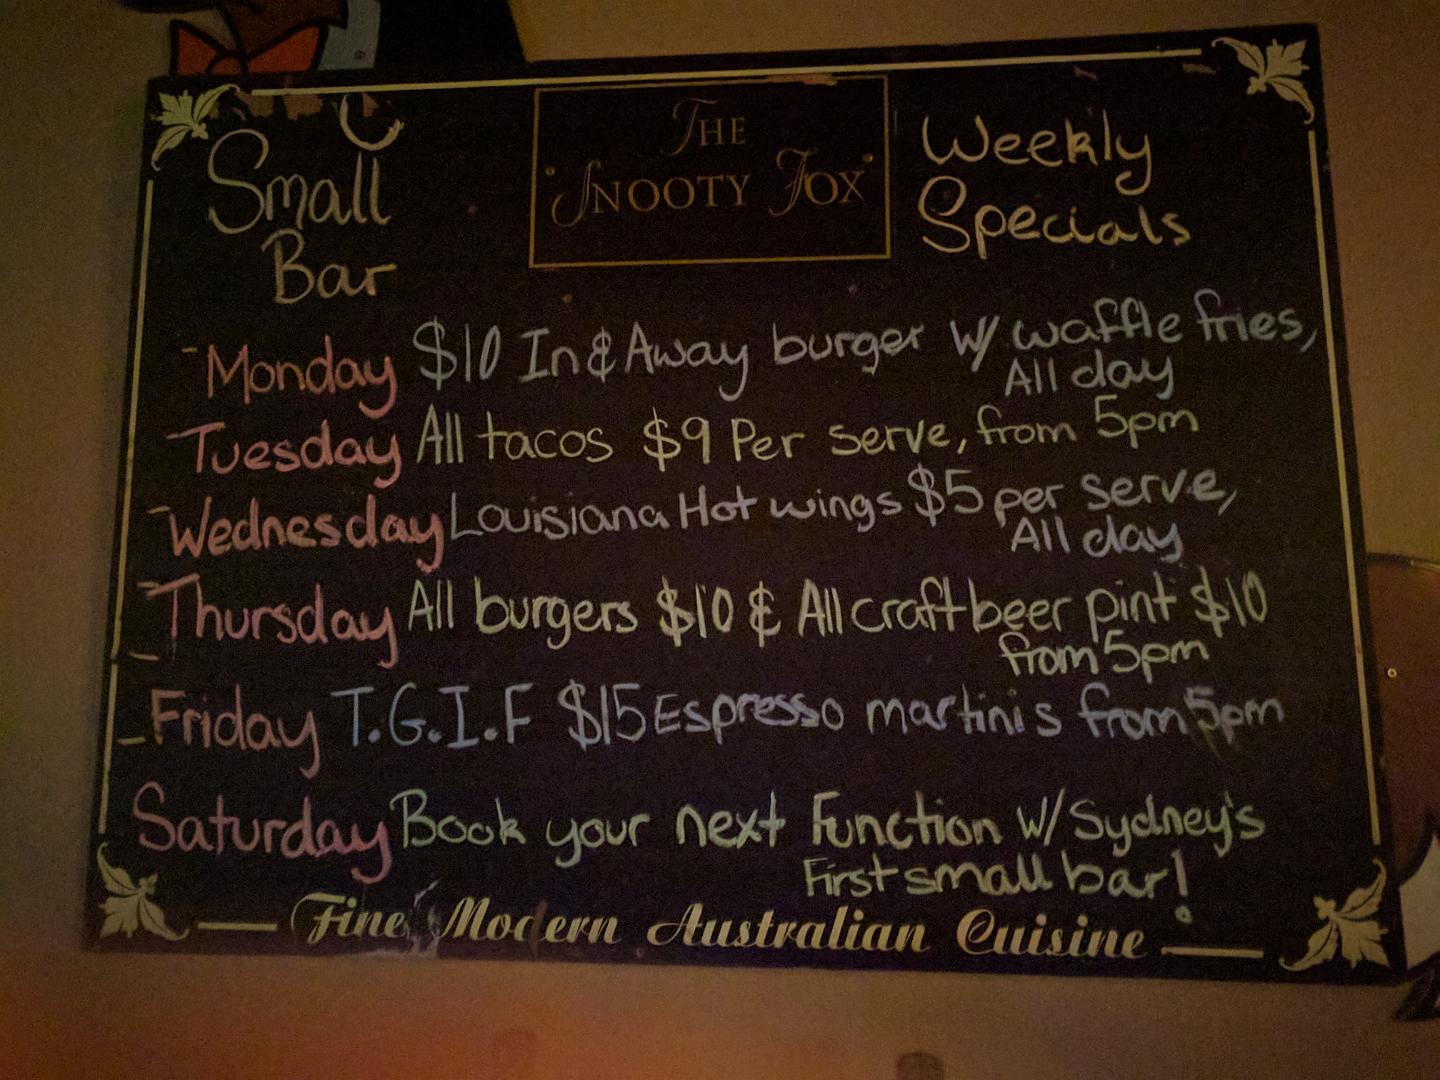 Small
Bar
The
Snooty Fox
Weekly
Specials
Monday $10 In & Away burger w/ waffle fries,
All day
Tuesday All tacos $9 Per serve, from 5pm
Wednesday Louisiana Hot wings $5 per serve,
All day
Thursday All burgers $10 & All craft beer pint $10
from 5pm
Friday T.G.I.F $15 Espresso martinis from 5pm
Saturday Book your next Function w/ Sydney's
First small bar!
Fine Modern Australian Cuisine